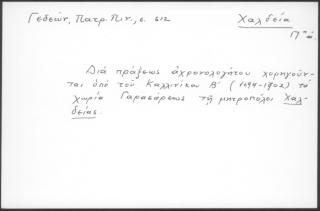 Γεδεών, Πατρ. Πιν., σ. 612
Χαλδεία
Διά πράξεως ἀχρονολογήτου χορηγοῦν-
ται ὑπό τοῦ Καλλινίκου Β΄ (1694-1702) τά
χωρία Γαρασάρεως τῇ μητροπόλει Χαλ-
δείας.